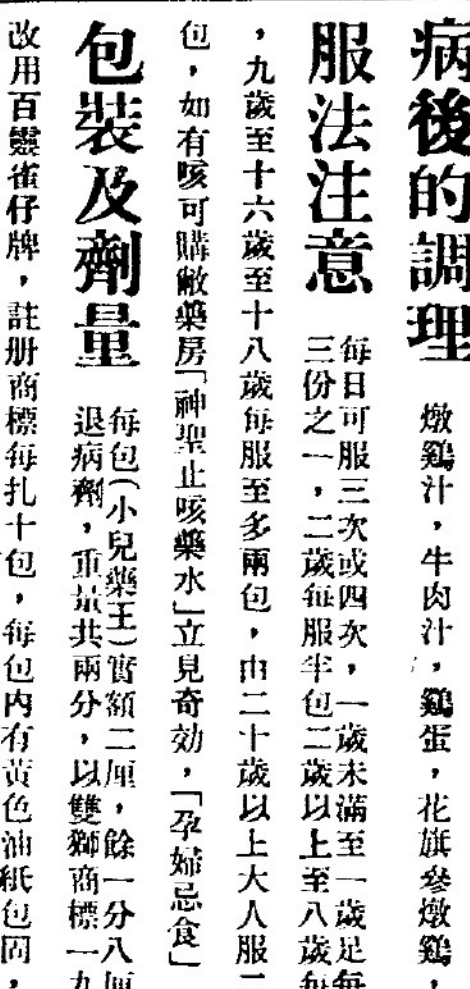 病後的調理
燉鷄汁，牛肉汁，鷄蛋，花旗參燉鷄，
服法注意
每日可服三次或四次，一歲未滿至一歲足每
三份之一，二歲每服半包二歲以上至八歲每
，九歲至十六歲至十八歲每服至多兩包，由二十歲以上大人服二
包，如有咳可購敝藥房「神聖止咳藥水」立見奇効，「孕婦忌食」
包裝及劑量
每包（小兒藥王）實額二厘，餘一分八厘
退病劑，重量共兩分，以雙獅商標一九
改用百靈雀仔牌，註册商標每扎十包，每包内有黃色油紙包固，